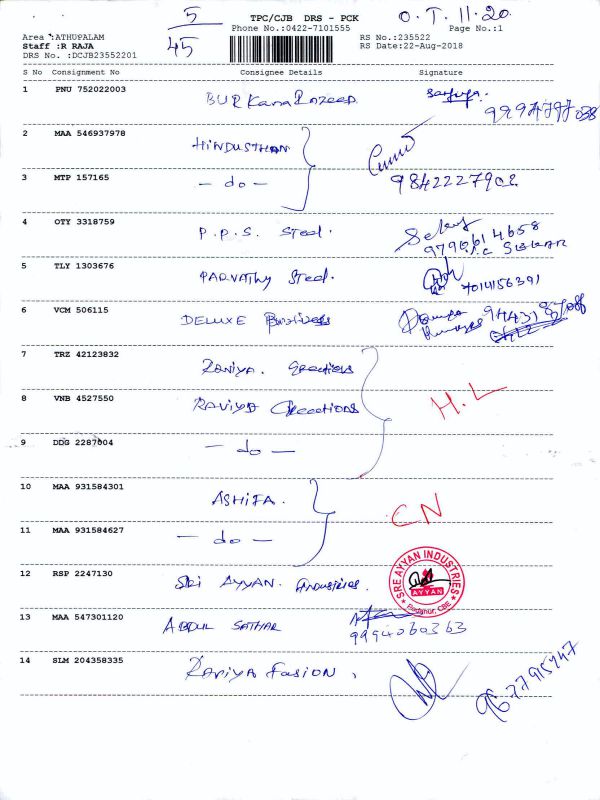 5
45
TPC/CJB DRS - PCK
O.T. 11.20
Phone No.:0422-7101555
Page No.:1
Area :ATHUPALAM
RS No.:235522
Staff :R RAJA
RS Date:22-Aug-2018
DRS No. :DCJB23552201
S No Consignment No Consignee Details Signature
1 PNU 752022003
2 MAA 546937978 HINDUSTHAN
3 MTP 157165 - do - 9842227902
4 OTY 3318759 P.P.S. Steel.
5 TLY 1303676 PARVATHY Steel. 7014156391
6 VCM 506115 DELUXE
7 TRZ 42123832
8 VNB 4527550
H.L
9 DDG 2287004 - do -
10 MAA 931584301 ASHIFA.
CN
11 MAA 931584627 - do -
12 RSP 2247130 SRI AYYAN. Industries.
SREE AYYAN INDUSTRIES
AYYAN
13 MAA 547301120 ABDUL SATHAR
9994060363
14 SLM 204358335 Raniya Fasion,
9677915247